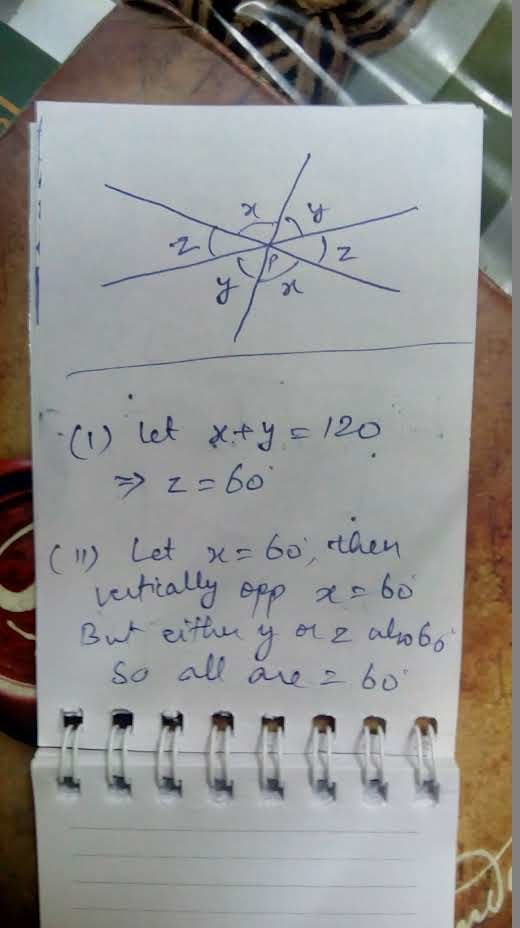 x y
z z
P
y x
(I) Let x+y = 120
⇒ z = 60°
(II) Let x = 60°, then
vertically opp x = 60°
But either y or z also 60°
So all are = 60°